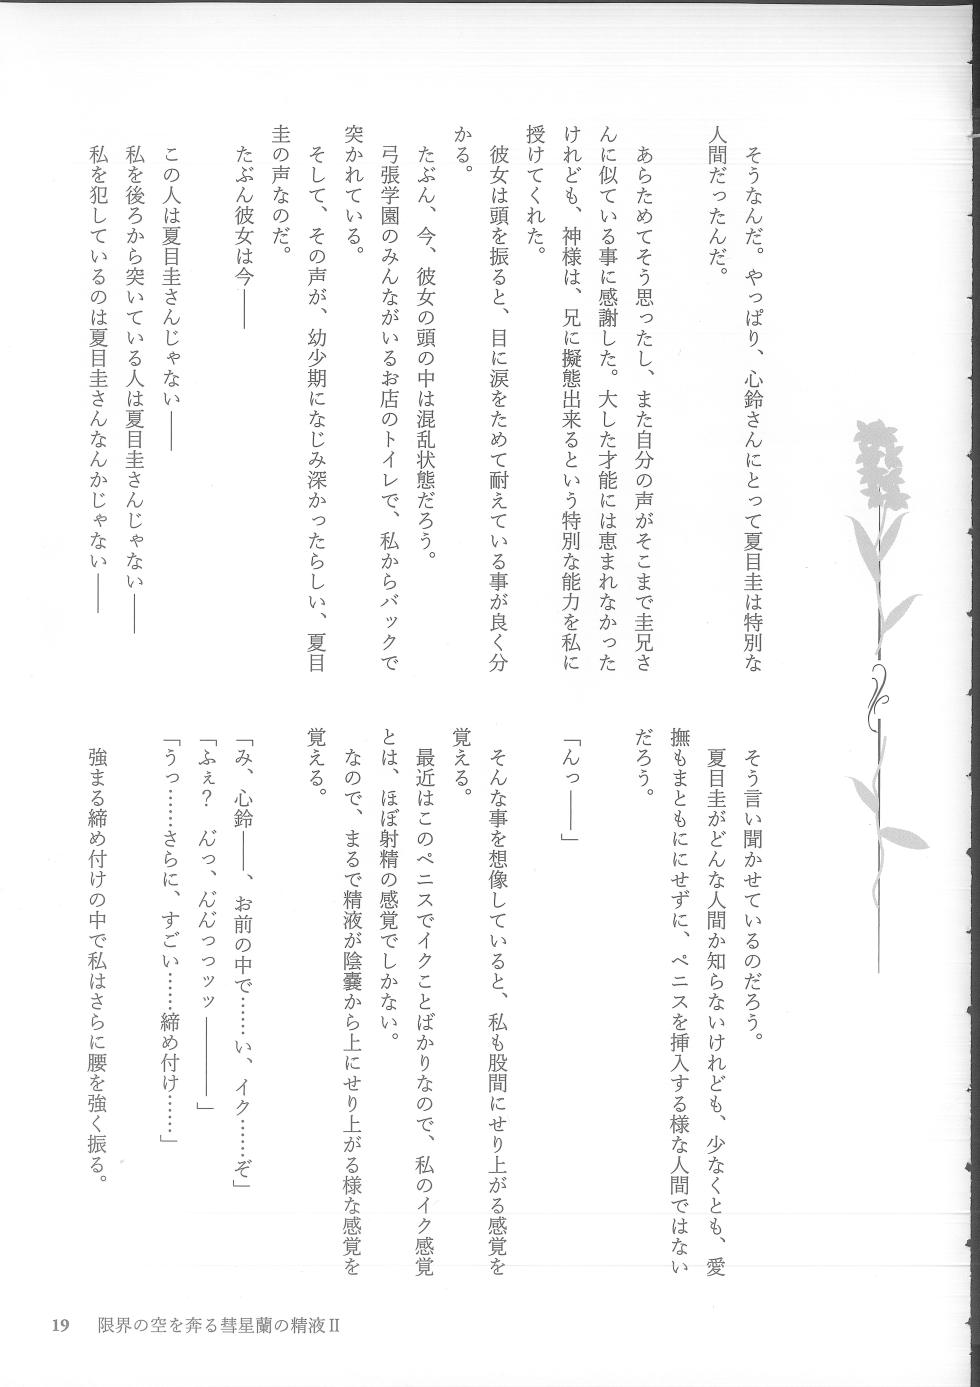 そうなんだ。やっぱり、心鈴さんにとって夏目圭は特別な
人間だったんだ。
あらためてそう思ったし、また自分の声がそこまで圭兄さ
んに似ている事に感謝した。大した才能には恵まれなかった
けれども、神様は、兄に擬態出来るという特別な能力を私に
授けてくれた。
彼女は頭を振ると、目に涙をためて耐えている事が良く分
かる。
たぶん、今、彼女の頭の中は混乱状態だろう。
弓張学園のみんながいるお店のトイレで、私からバックで
突かれている。
そして、その声が、幼少期になじみ深かったらしい、夏目
圭の声なのだ。
たぶん彼女は今――
この人は夏目圭さんじゃない――
私を後ろから突いている人は夏目圭さんじゃない――
私を犯しているのは夏目圭さんなんかじゃない――
そう言い聞かせているのだろう。
夏目圭がどんな人間か知らないけれども、少なくとも、愛
撫もまともににせずに、ペニスを挿入する様な人間ではない
だろう。
「んっ――」
そんな事を想像していると、私も股間にせり上がる感覚を
覚える。
最近はこのペニスでイクことばかりなので、私のイク感覚
とは、ほぼ射精の感覚でしかない。
なので、まるで精液が陰嚢から上にせり上がる様な感覚を
覚える。
「み、心鈴――、お前の中で……い、イク……ぞ」
「ふぇ？　ん゛っ、ん゛ん゛っっッッ――――」
「うっ……さらに、すごい……締め付け……」
強まる締め付けの中で私はさらに腰を強く振る。
19　限界の空を奔る彗星蘭の精液Ⅱ